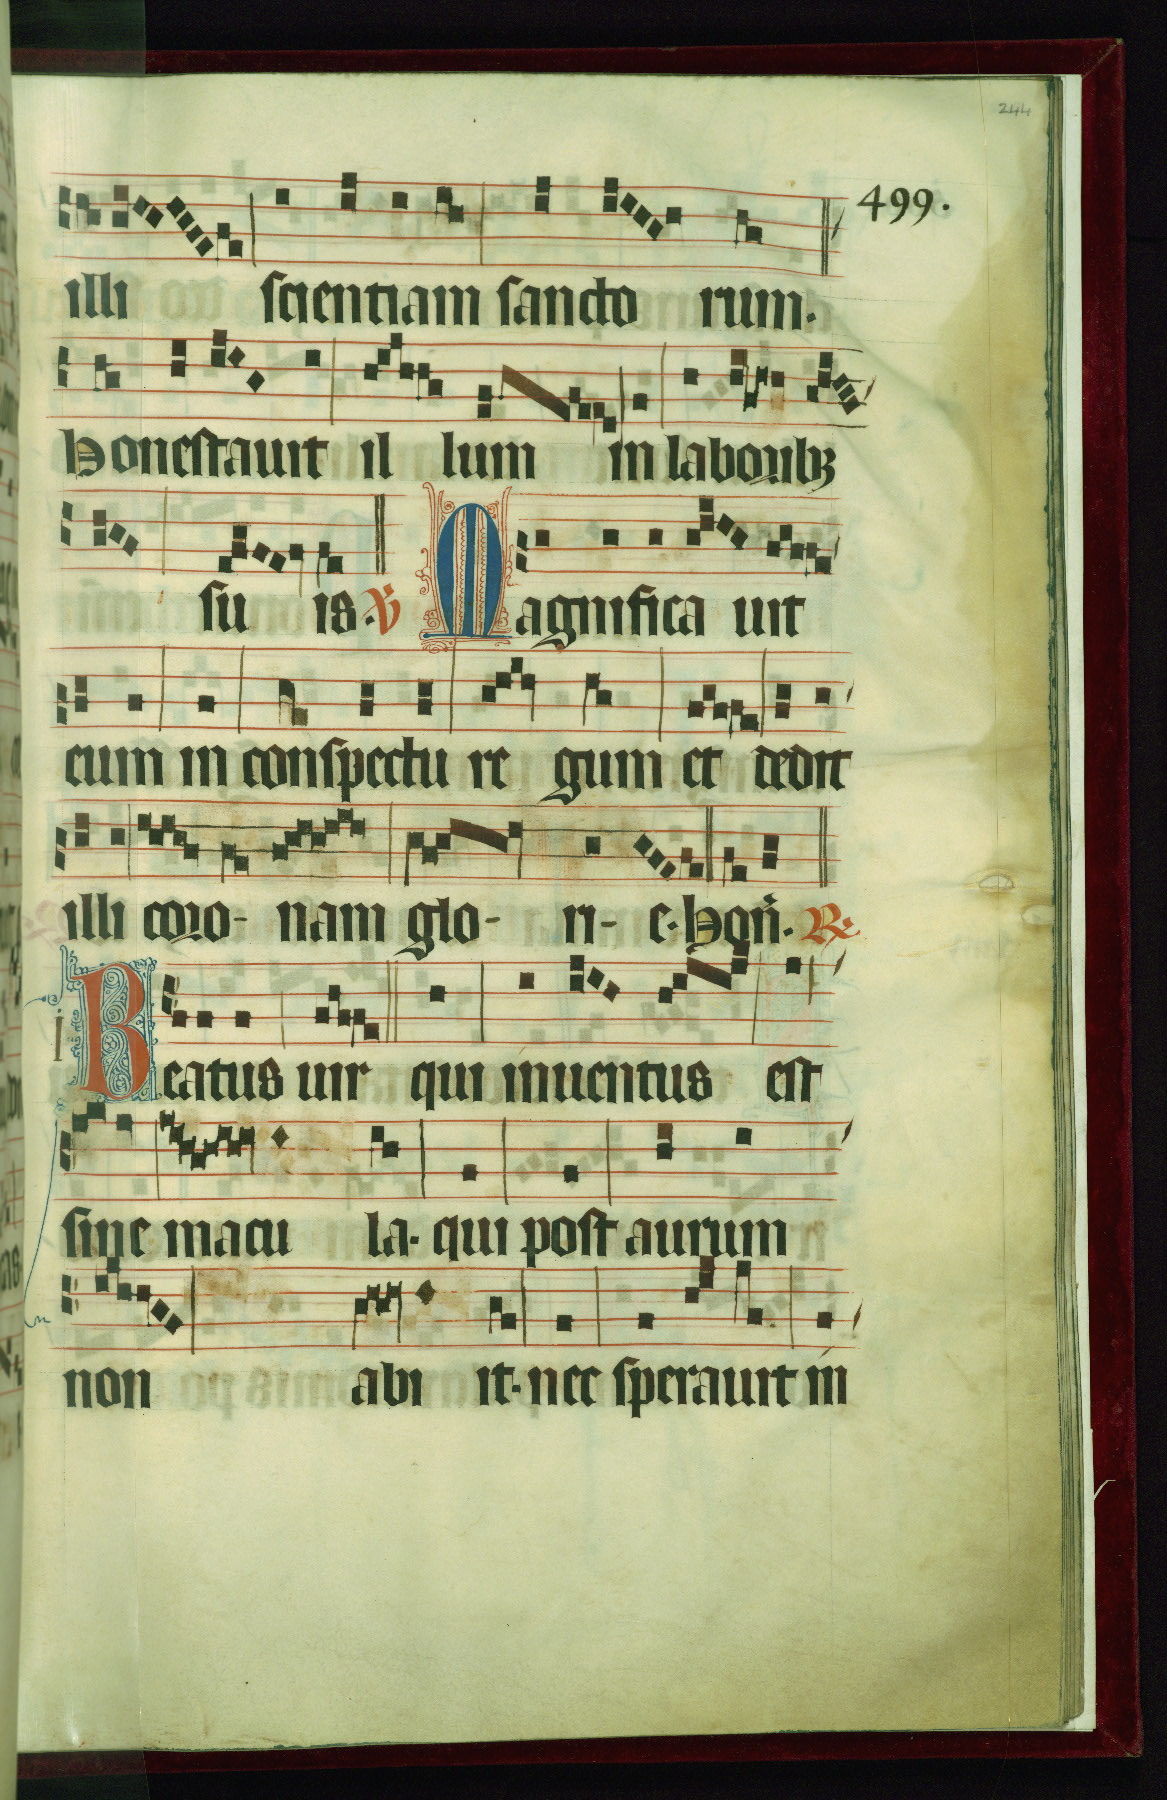 244
499.
illi scientiam sancto rum.
Honestauit il lum in laboribꝫ
su is. ℣ Magnifica uit
eum in conspectu re gum et dedit
illi coro- nam glo- ri- e. Hon̄. ℟.
Beatus uir qui inuentus est
sine macu la. qui post aurum
non abi it. nec sperauit in